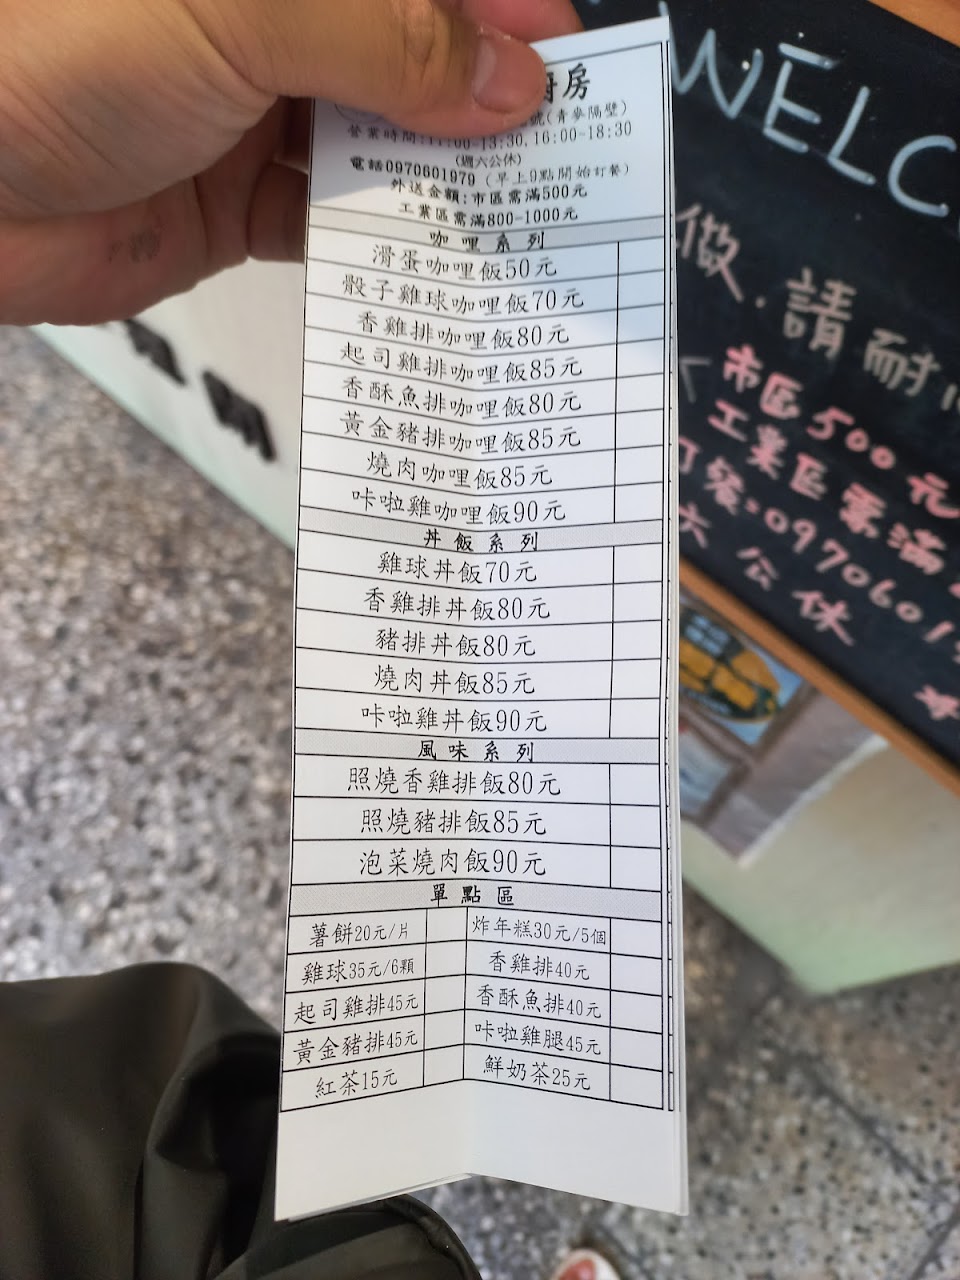 廚房
號(青參隔壁)
營業時間:11:00-13:30,16:00-18:30
(週六公休)
電話0970601979(早上9點開始訂餐)
外送金額:市區需滿500元
工業區需滿800-1000元
咖哩系列
滑蛋咖哩飯50元
骰子雞球咖哩飯70元
香雞排咖哩飯80元
起司雞排咖哩飯85元
香酥魚排咖哩飯80元
黃金豬排咖哩飯85元
燒肉咖哩飯85元
咔啦雞咖哩飯90元
丼飯系列
雞球丼飯70元
香雞排丼飯80元
豬排丼飯80元
燒肉丼飯85元
咔啦雞丼飯90元
風味系列
照燒香雞排飯80元
照燒豬排飯85元
泡菜燒肉飯90元
單點區
薯餅20元/片 炸年糕30元/5個
雞球35元/6顆 香雞排40元
起司雞排45元 香酥魚排40元
黃金豬排45元 咔啦雞腿45元
紅茶15元 鮮奶茶25元
WELC
做.請耐
市區500元
工業區需滿
訂餐:09706019
六公休